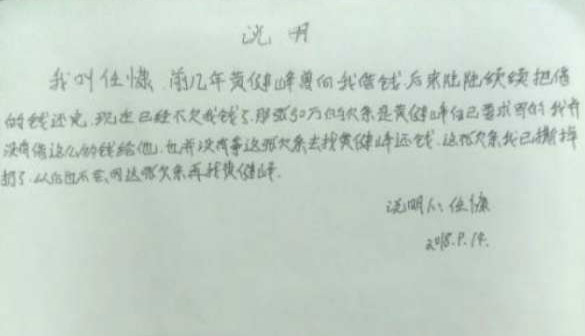 说明
我叫任慷,前几年黄健峰曾向我借钱,后来陆陆续续把借
的钱还完,现在已经不欠我钱了,那张50万的欠条是黄健峰自己要求写的,我并
没有借这么的钱给他,也并没有拿这张欠条去找黄健峰还钱,这张欠条我已撕掉
扔了,从后也不会用这张欠条再找黄健峰.
说明人:任慷
2018.9.14.